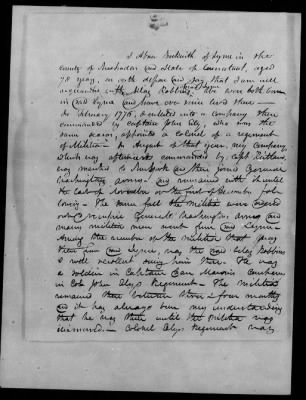 I Abner Beckwith of Lyme in the
county of New London and State of Connecticut, aged
78 years, on oath depose and say, that I am well
acquainted with Silas Robbins, we were both born
in said Lyme and have ever since lived there
In February 1776, I enlisted into a Company then
commanded by Captain John Ely, who was the
same season, appointed a Colonel of a regiment
of Militia. In August of that year, my company
which was afterwards commanded by Capt
was marched to New York and there joined General
Washingtons army, and remained with it until
the last of November or the first of December fol-
lowing. The same fall the Militia were ordered
out to reinforce General Washingtons army and
many militia men went from said Lyme.
Among the number of the militia that
from said Lyme, was the said Silas Robbins
I well recollect seeing him there. He was
a soldier in Captain Company
in Col John Elys Regiment. The Militia
remained there between three & four months
and it has always been my understanding
that he was there until the Militia was
dismissed. Colonel Elys Regiment was